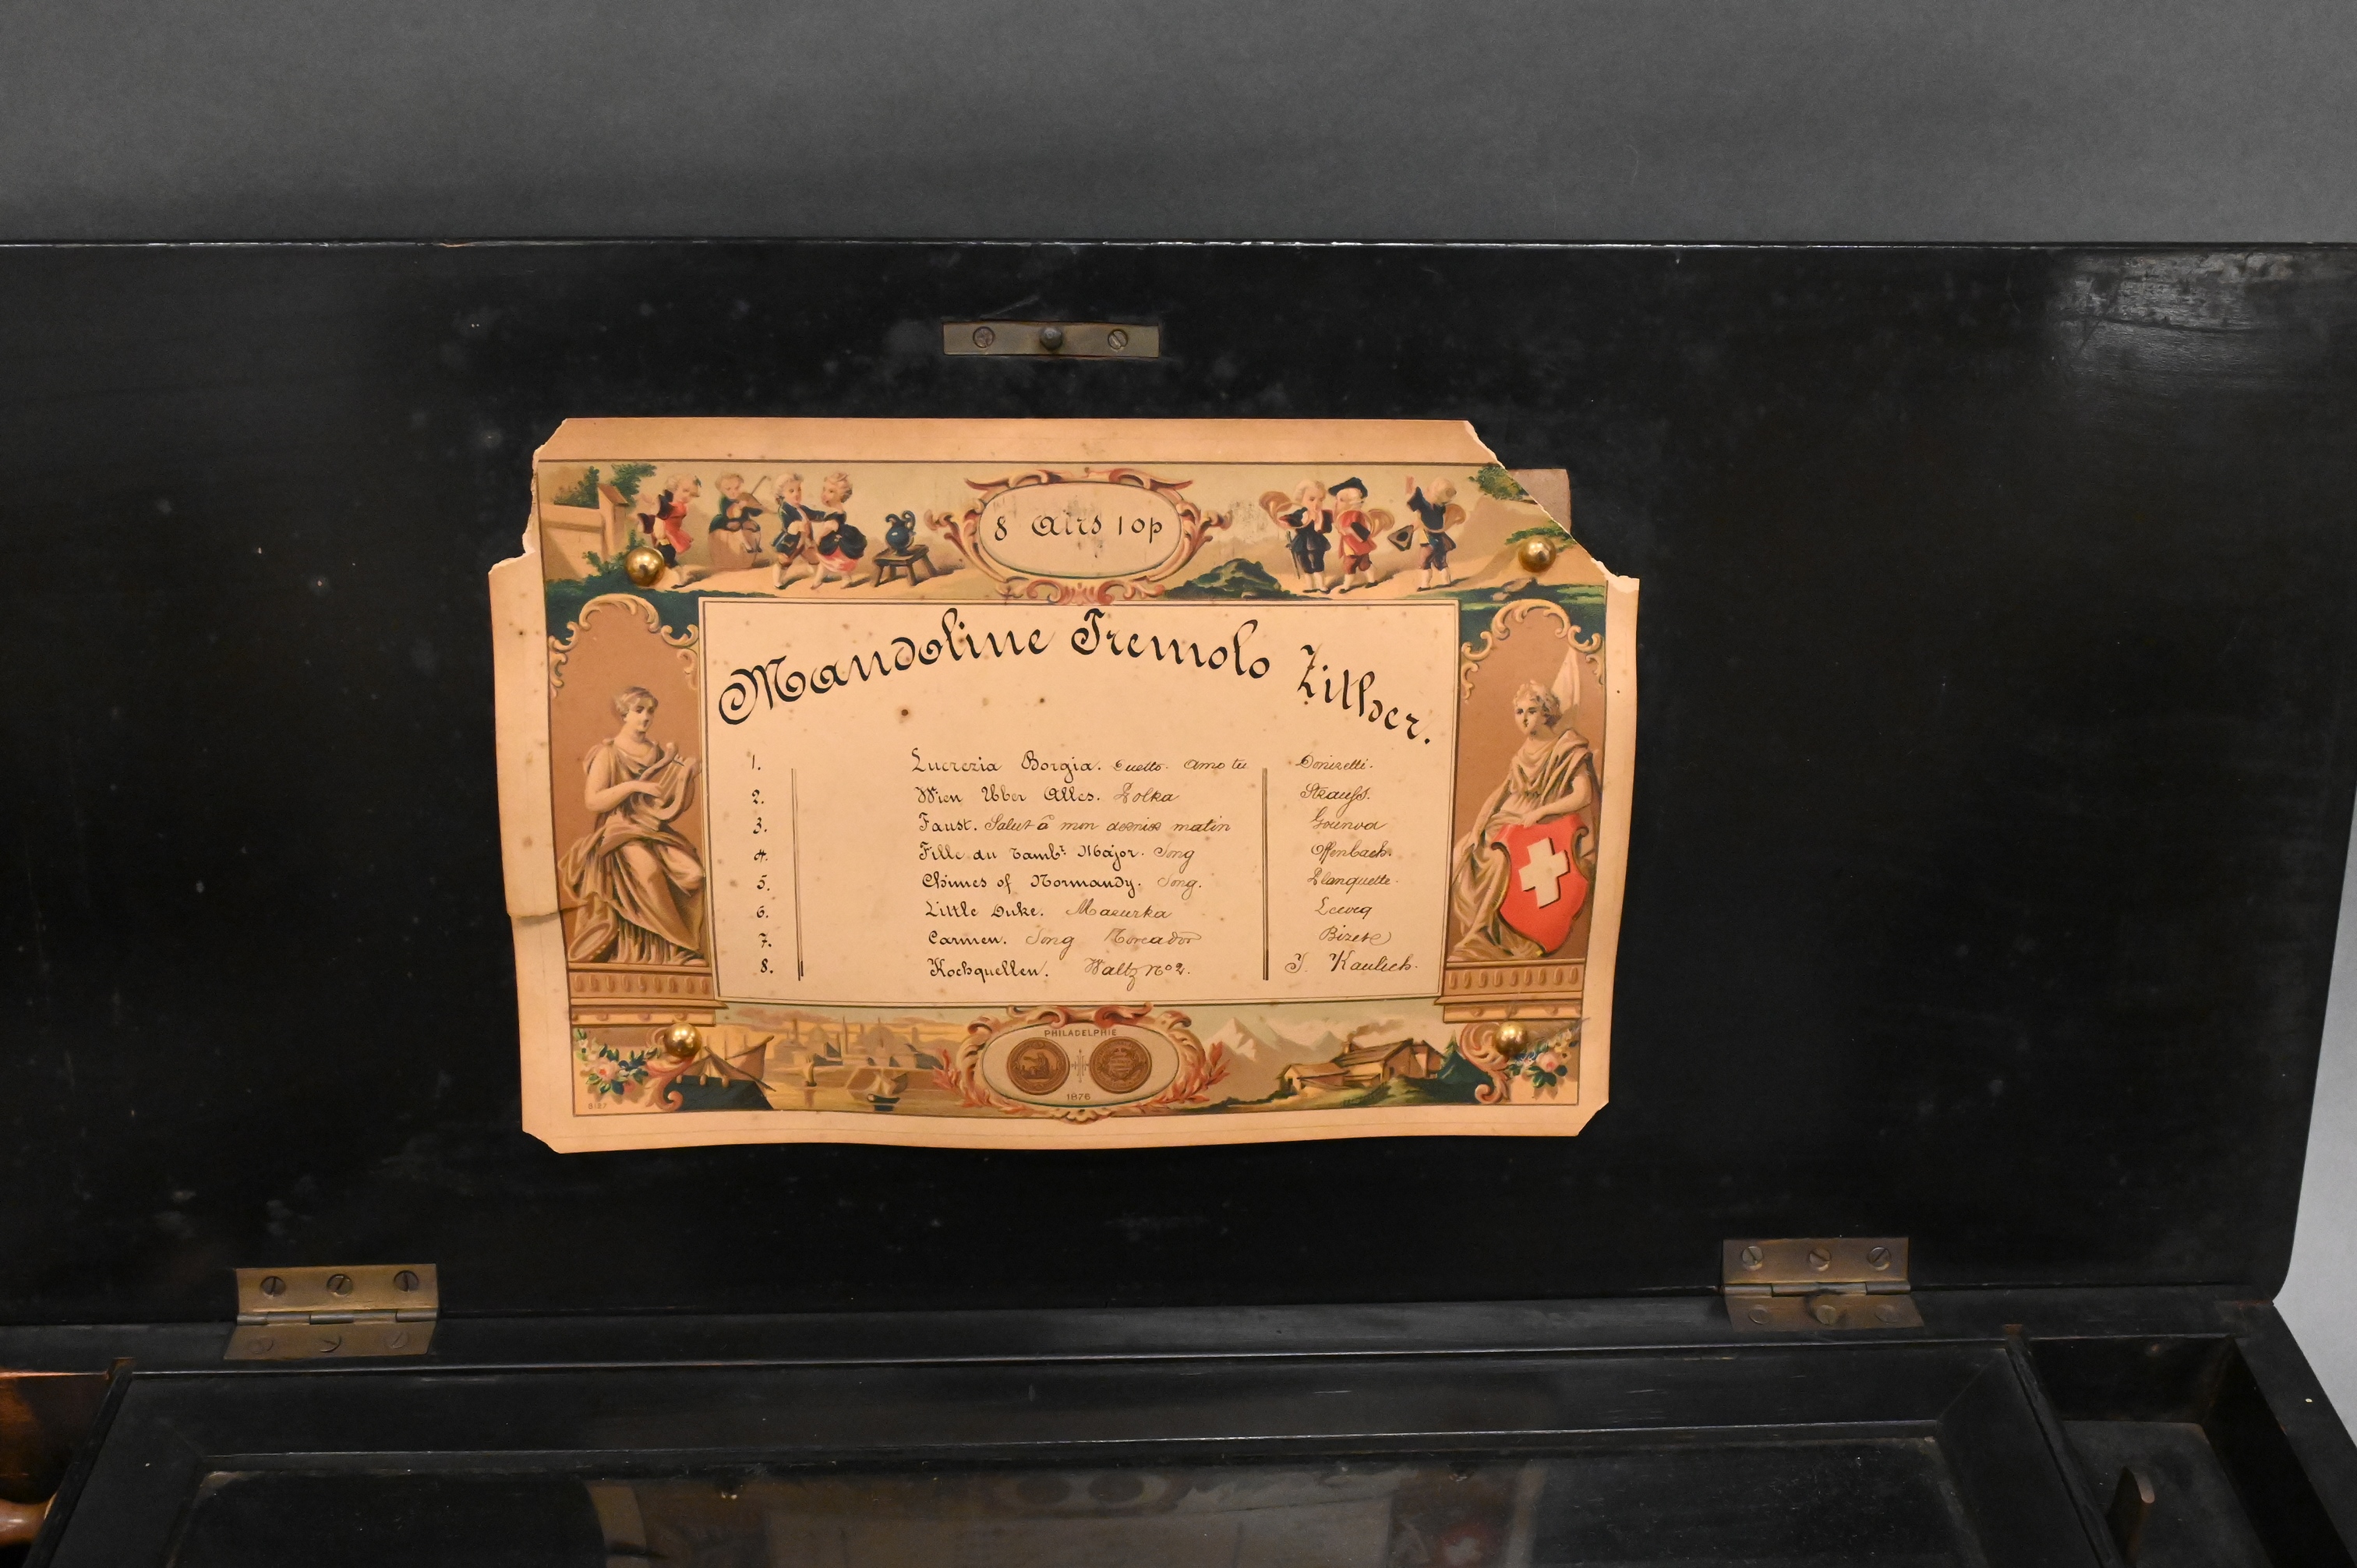 8 Airs 10p
Mandoline Tremolo Zither.
1. Lucrezia Borgia. Duetto. Ama tu Donizetti.
2. Wien Uber Alles. Polka Strauss.
3. Faust. Salut ô mon dernier matin Gounod
4. Fille du Tambr Major. Song Offenbach.
5. Chimes of Normandy. Song. Planquette.
6. Little Duke. Mazurka Lecocq
7. Carmen. Song Toreador Bizet
8. Kochquellen. Waltz No 2. J. Kaulich.
PHILADELPHIE
1876